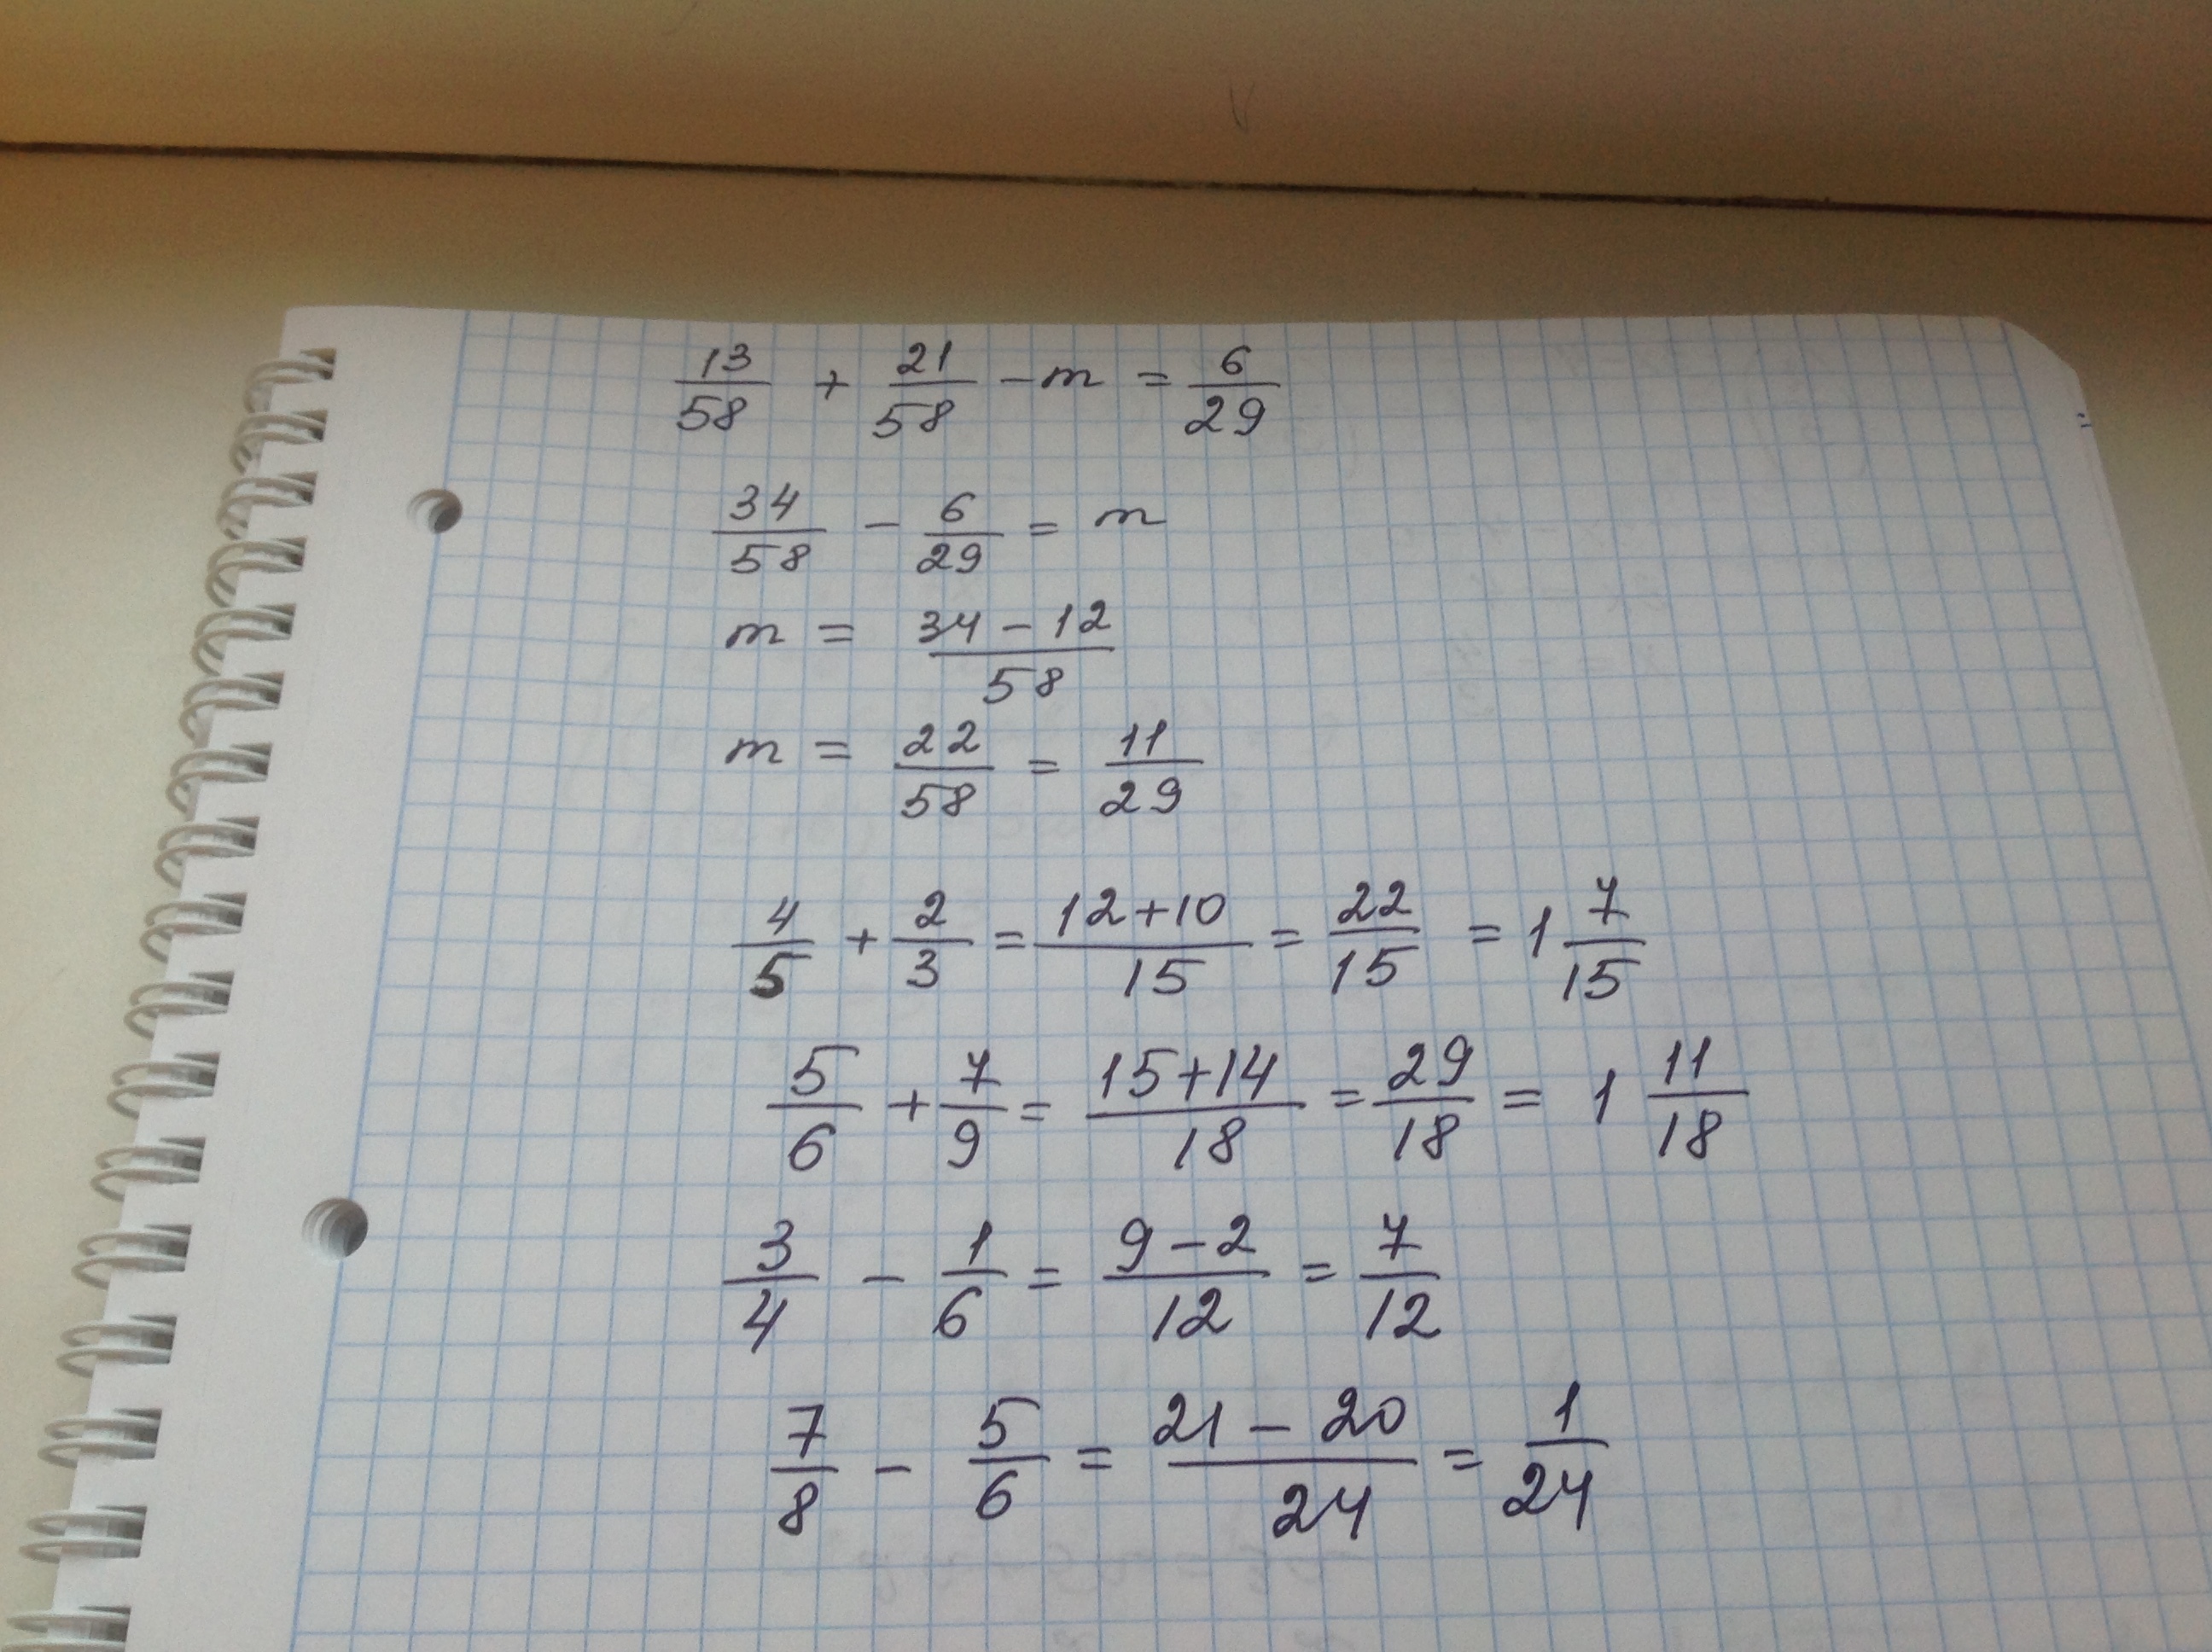 13/58 + 21/58 - m = 6/29
34/58 - 6/29 = m
m = (34 - 12)/58
m = 22/58 = 11/29
4/5 + 2/3 = (12+10)/15 = 22/15 = 1 7/15
5/6 + 7/9 = (15+14)/18 = 29/18 = 1 11/18
3/4 - 1/6 = (9-2)/12 = 7/12
7/8 - 5/6 = (21 - 20)/24 = 1/24